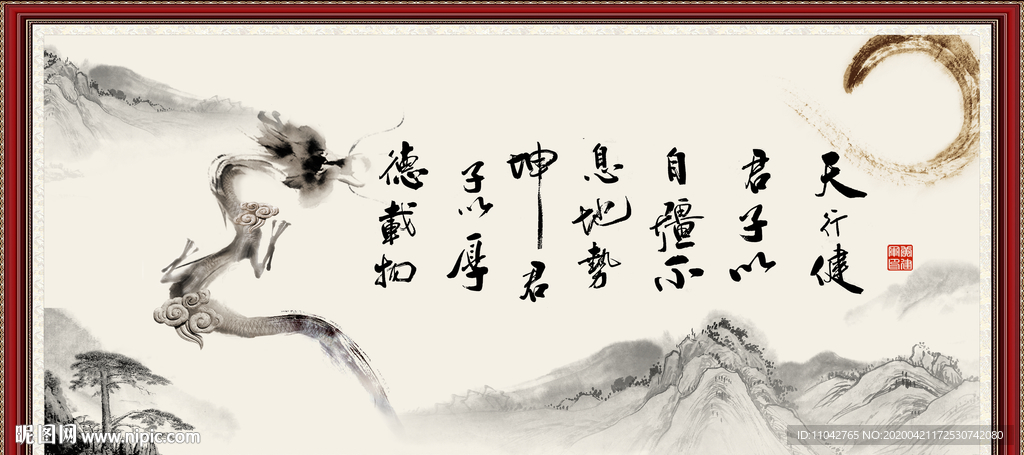 天行健
君子以
自疆不
息地勢
坤君
子以厚
德載物
昵图网 www.nipic.com
ID:11042765 NO:20200421172530742080